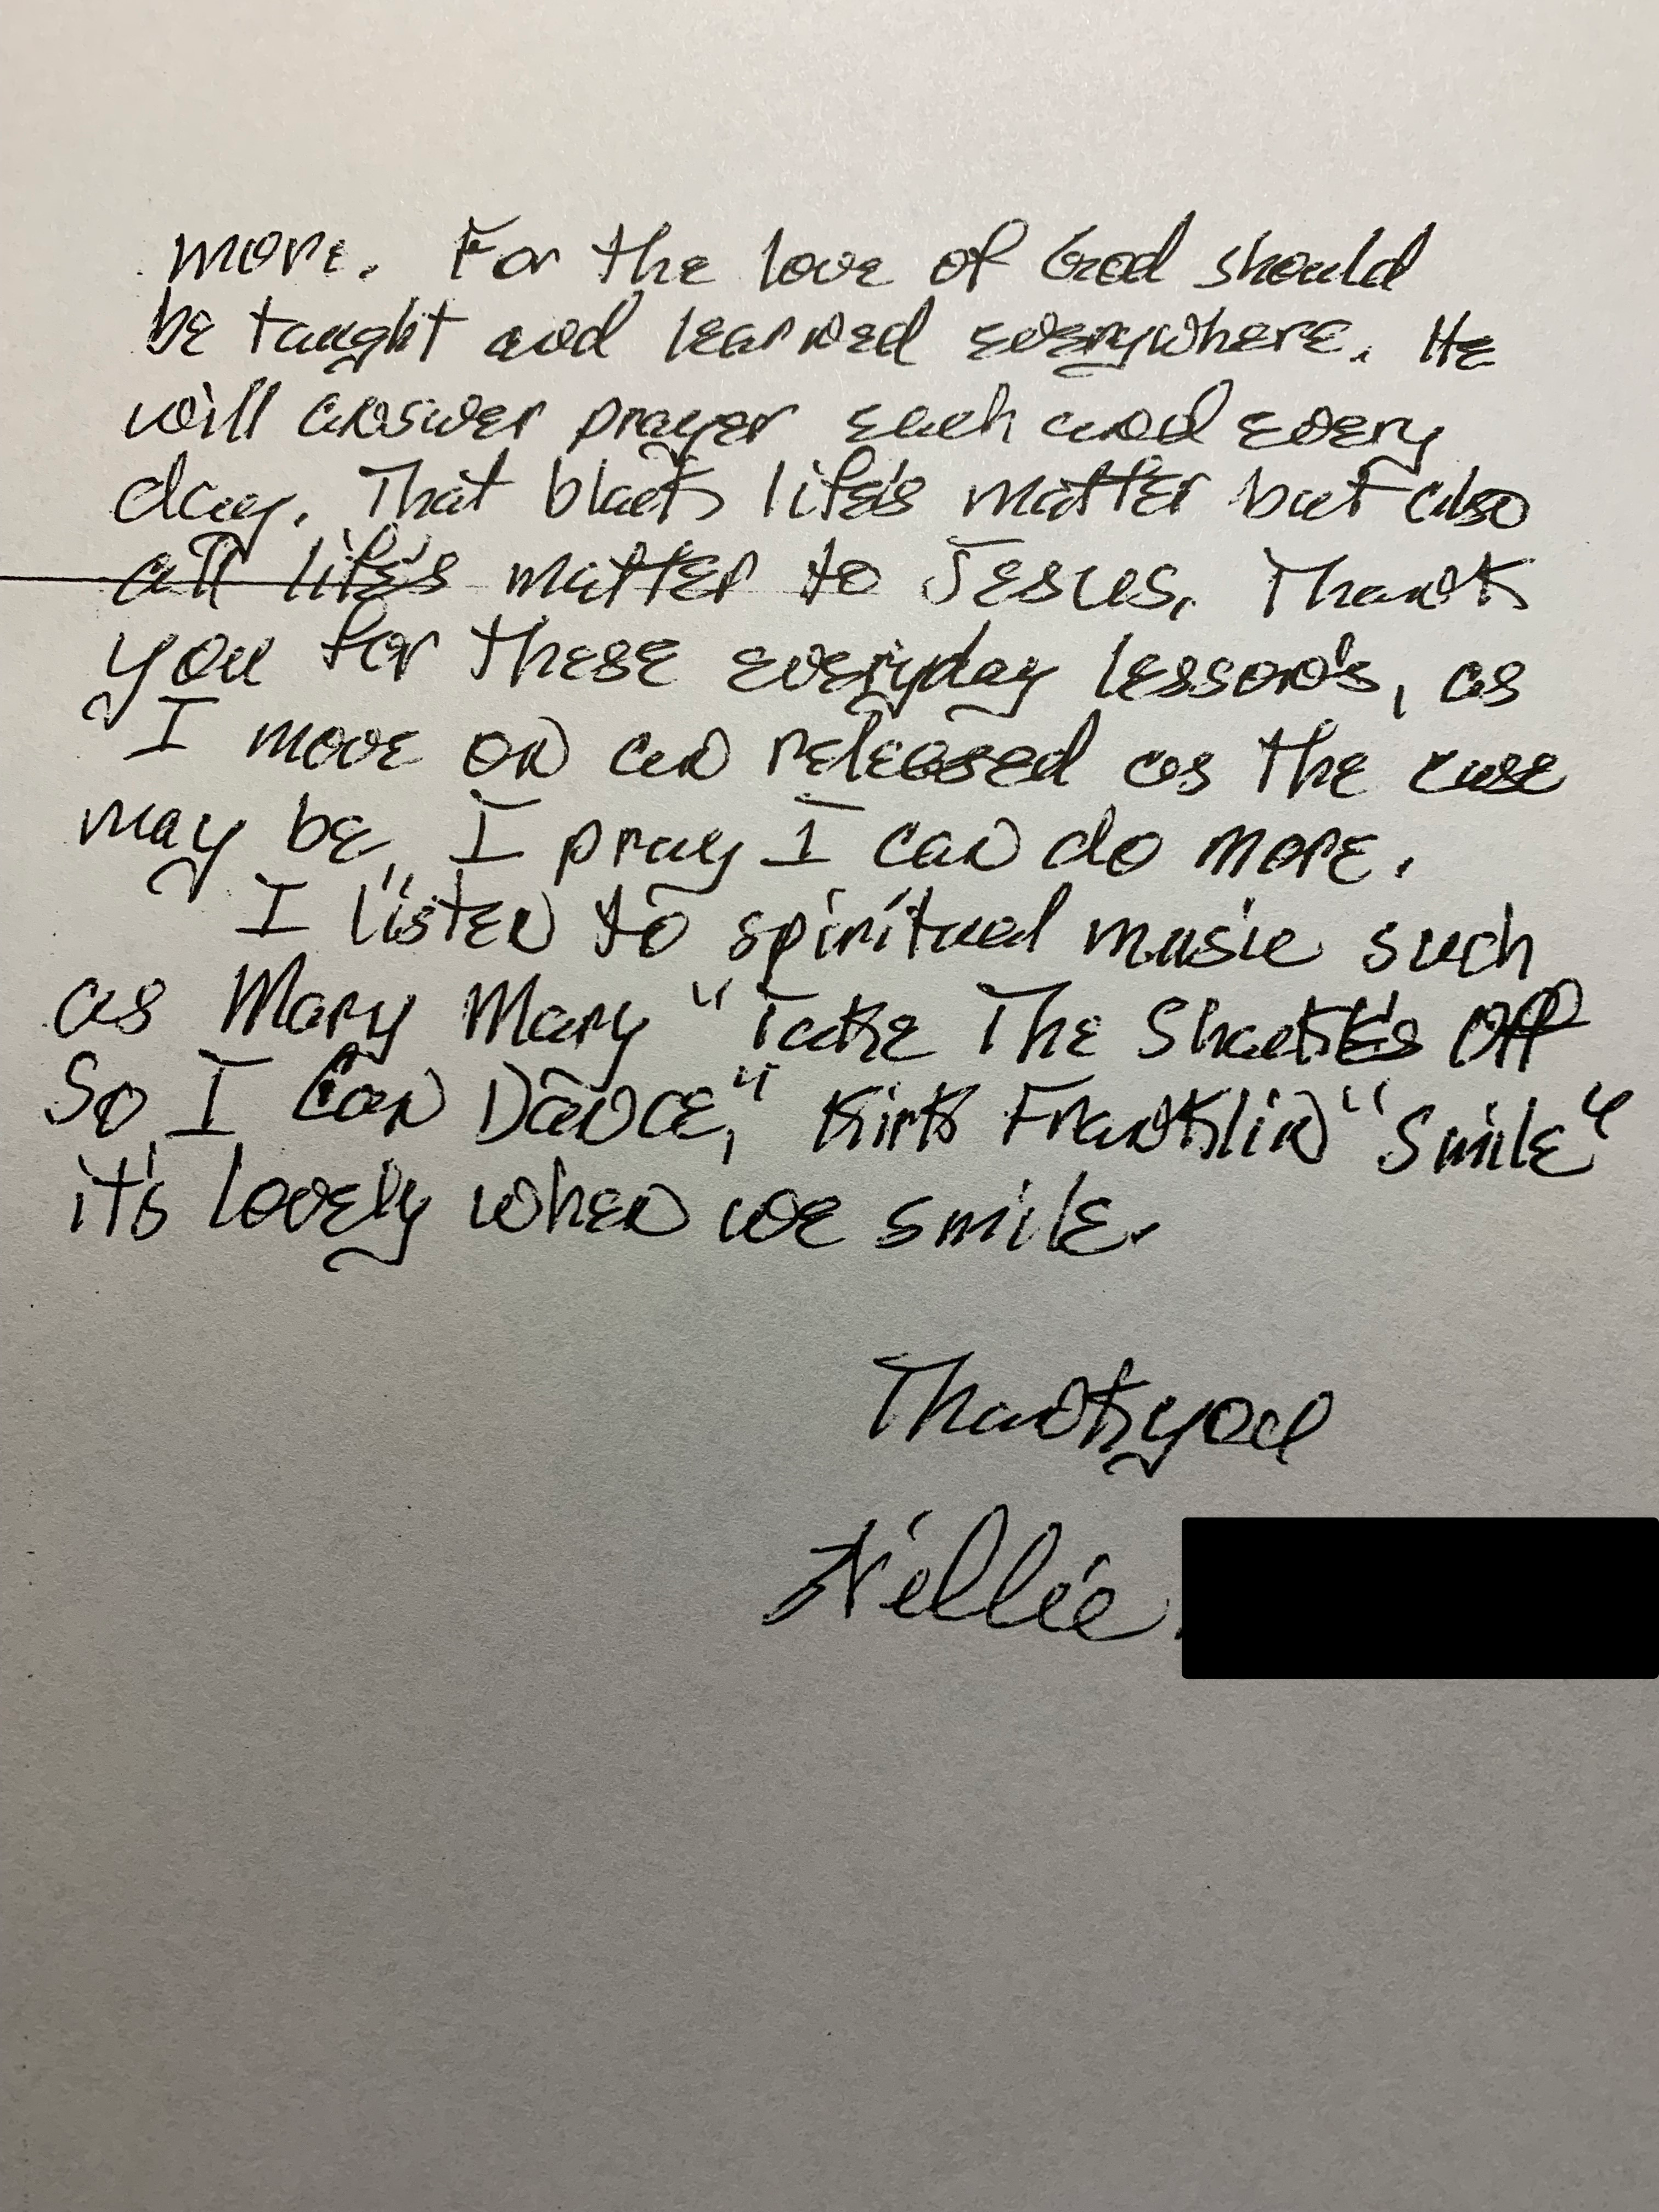 more. For the love of God should
be taught and learned everywhere. He
will answer prayer each and every
day. That black life's matter but also
all life's matter to Jesus. Thank
you for these everyday lesson's, as
I move on an released as the case
may be, I pray I can do more.
I listen to spiritual music such
as Mary Mary "Take The Shackle's Off
So I Can Dance," Kirk Franklin "Smile"
it's lovely when we smile.
Thank you
Nellie